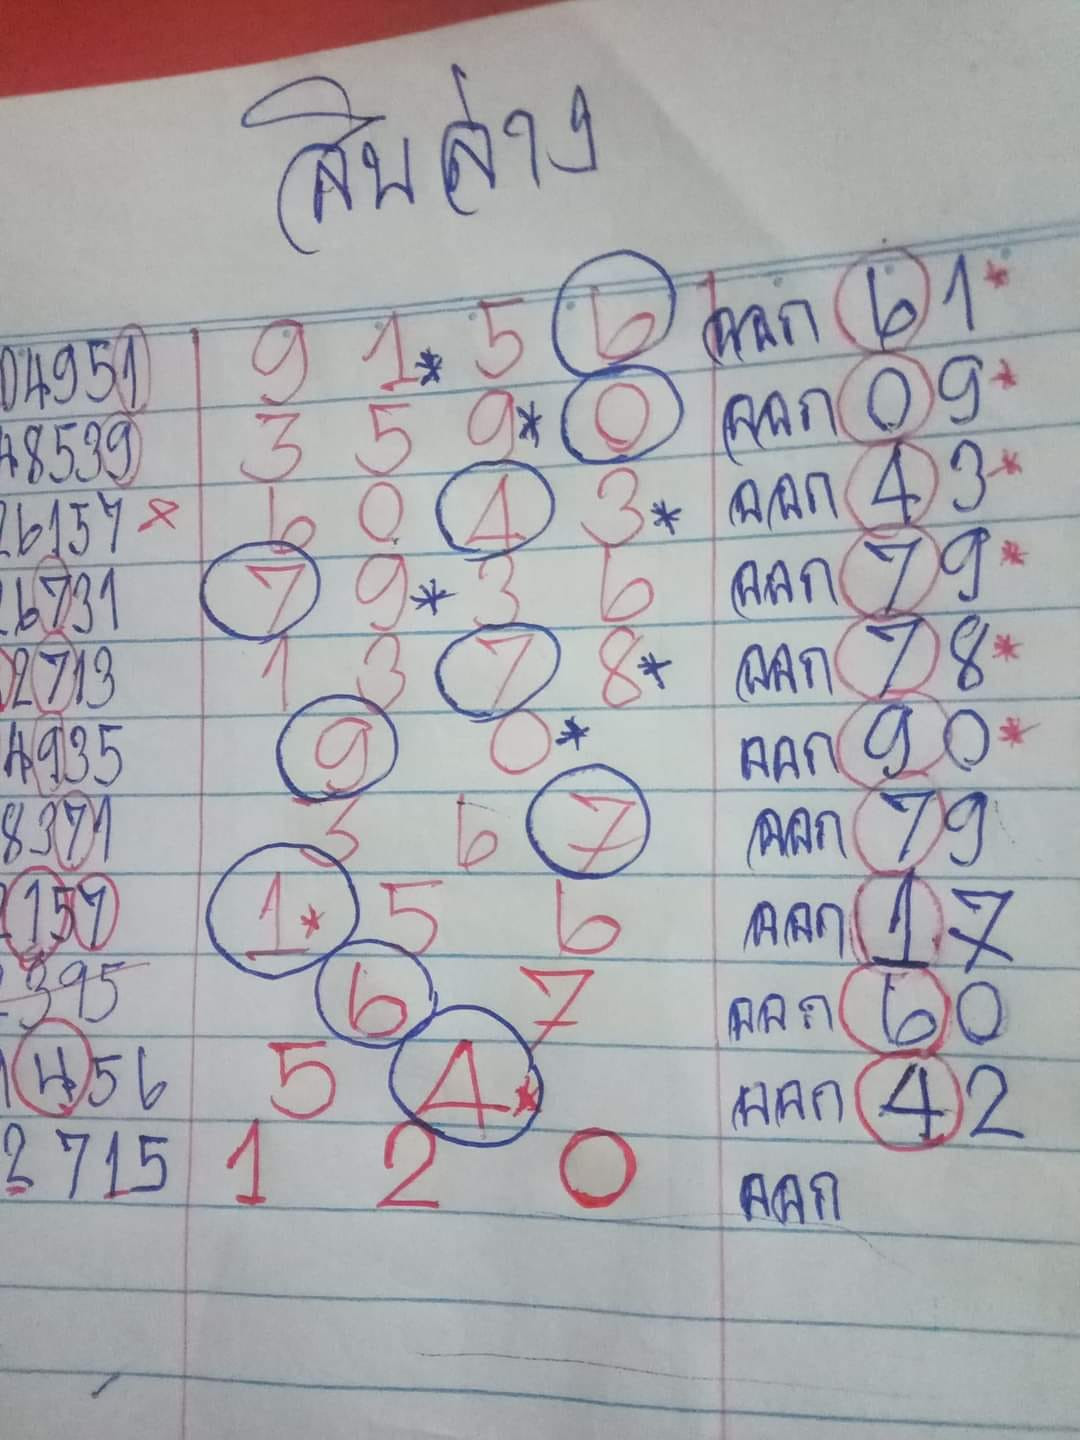 สิบล่าง
04951 9 1* 5 6 ออก 61*
48539 3 5 9* 0 ออก 09*
26157 × 6 0 4 3* ออก 43*
26731 7 9* 3 6 ออก 79*
2713 1 3 7 8* ออก 78*
4935 9 0* ออก 90*
8371 3 6 7 ออก 79
157 1* 5 6 ออก 17
395 6 7 ออก 60
1456 5 4* ออก 42
2715 1 2 0 ออก